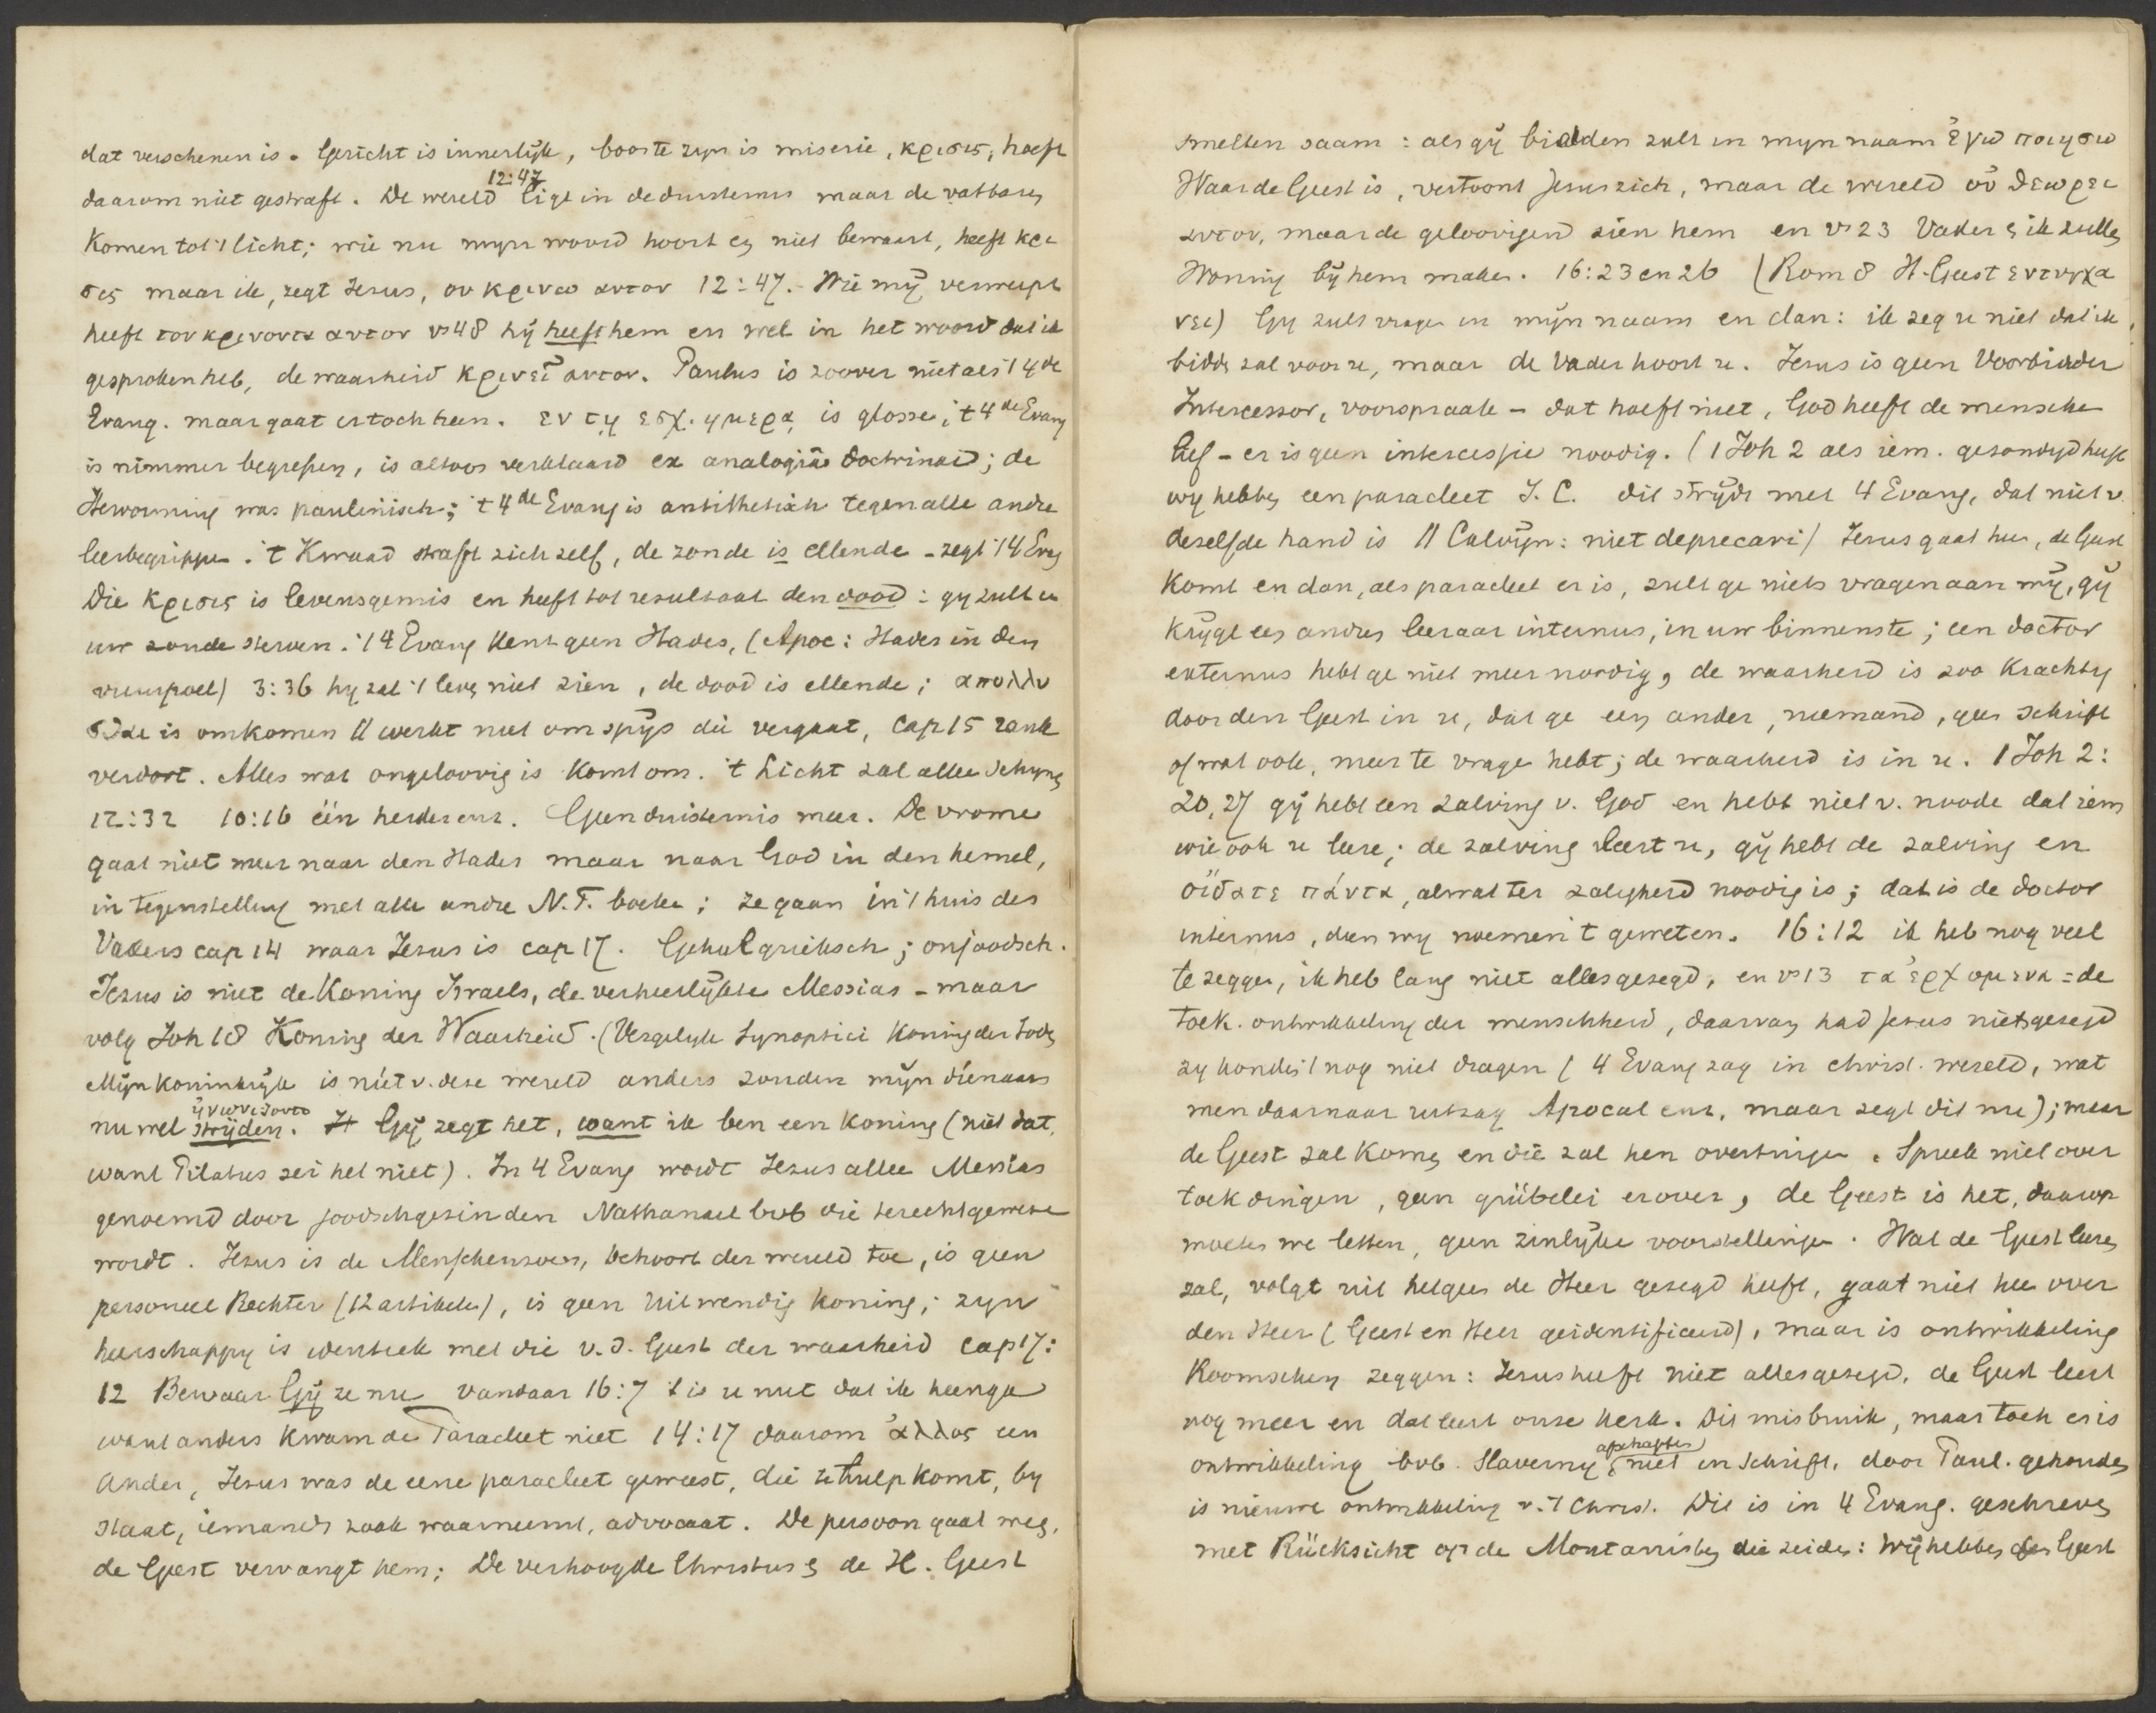 dat verschenen is. Gericht is innerlijk, boos te zyn is miserie, κρισις, hoeft
12:47
daarom niet gestraft. De wereld ligt in de duisternis maar de vatbaren
komen tot 't licht; wie nu myn woord hoort en niet bewaart, heeft κρι
σις maar ik, zegt Jezus, ου κρινω αυτον 12:47. Wie mij verwerpt
heeft τον κρινοντα αυτον vs 48 hij heeft hem en wel in het woord dat ik
gesproken heb, de waarheid κρινεῖ αυτον. Paulus is zoover niet als 't 4de
Evang. maar gaat er toch heen. εν τῃ εσχ. ημερᾳ is glosse; 't 4de Evang
is nimmer begrepen, is altoos verklaard ex analogiâ doctrinae; de
Hervorming was paulinisch; 't 4de Evang is antithetisch tegen alle andre
leerbegrippen. 't Kwaad straft zich zelf, de zonde is ellende - zegt 't 4 Evg
Die κρισις is levensgemis en heeft tot resultaat den dood: gy zult in
uw zonde sterven. 't 4 Evang kent geen Hades, (Apoc: Hades in den
vuurpoel) 3:36 hy zal 't leven niet zien, de dood is ellende; απολλυ
σθαι is omkomen || werkt niet om spijs die vergaat, Cap 15 rank
verdort. Alles wat ongeloovig is komt om. 't Licht zal allen schynen
12:32 10:16 één herder enz. Geen duisternis meer. De vrome
gaat niet meer naar den Hades maar naar God in den hemel,
in tegenstelling met alle andre N.T. boeken; ze gaan in 't huis des
Vaders cap 14 waar Jezus is cap 17. Geheel grieksch; onjoodsch.
Jezus is niet de Koning Israels, de verheerlijkte Messias - maar
volg Joh 18 Koning der Waarheid. (Vergelyk Synoptici Koning der Joden
Mijn koninkrijk is niet v. deze wereld anders zouden mijn dienaars
ἠγωνιζοντο
nu wel strijden. Gij zegt het, want ik ben een koning (niet dat,
want Pilatus zei het niet). In 4 Evang wordt Jezus alleen Messias
genoemd door joodschgezinden Nathanael bvb die terechtgewezen
wordt. Jezus is de Menschenzoon, behoort der wereld toe, is geen
personeel Rechter (12 artikelen), is geen uitwendig koning; zyn
heerschappy is identiek met die v. d. Geest der waarheid cap 17:
12 Bewaar Gij ze nu vandaar 16:7 't is u nut dat ik heenga
want anders kwam de Paracleet niet 14:17 daarom ἀλλος een
ander, Jezus was de eene paracleet geweest, die te hulp komt, by
staat, iemands zaak waarneemt, advocaat. De persoon gaat weg,
de Geest vervangt hem; De verhoogde Christus & de H. Geest
smelten saam: als gij bidden zult in myn naam ἐγω ποιησω
Waar de Geest is, vertoont Jesus zich, maar de wereld οὐ θεωρει
αυτον, maar de geloovigen zien hem en vs 23 Vader & ik zullen
Woning bij hem maken. 16:23 en 26 (Rom 8 H. Geest εντυγχα
νει) Gy zult vragen in mijn naam en dan: ik zeg u niet dat ik
bidden zal voor u, maar de Vader hoort u. Jezus is geen Voorbidder
Intercessor, voorspraak - dat hoeft niet, God heeft de menschen
lief - er is geen intercessie noodig. (1 Joh 2 als iem. gezondigd heeft
wy hebben een paracleet J. C. dit strijdt met 4 Evang, dat niet v.
dezelfde hand is || Calvijn: niet deprecari) Jezus gaat heen, de Geest
komt en dan, als paracleet er is, zult ge niets vragen aan mij, gij
krijgt een andren leeraar internus, in uw binnenste; een doctor
externus hebt ge niet meer noodig, de waarheid is zoo krachtig
door den Geest in u, dat ge een ander, niemand, geen schrift
of wat ook, meer te vragen hebt; de waarheid is in u. 1 Joh 2:
20, 27 gij hebt een zalving v. God en hebt niet v. noode dat iem
wie ook u leere; de zalving leert u, gij hebt de zalving en
οἴδατε πάντα, al wat ter zaligheid noodig is; dat is de doctor
internus, dien wy noemen 't geweten. 16:12 ik heb nog veel
te zeggen, ik heb lang niet alles gezegd, en vs 13 τα ἐρχομενα = de
toek. ontwikkeling der menschheid, daarvan had Jezus niets gezegd
zy konden 't nog niet dragen (4 Evang zag in christ. wereld, wat
men daarnaar uitzag Apocal enz. maar zegt dit nu); maar
de Geest zal komen en die zal hen overtuigen. Spreek niet over
toek dingen, geen grübelei erover, de Geest is het, daarop
moeten we letten, geen zinlijke voorstellingen. Wat de Geest leeren
zal, volgt uit hetgeen de Heer gezegd heeft, gaat niet heen over
den Heer (Geest en Heer geidentificeerd), maar is ontwikkeling
Roomschen zeggen: Jezus heeft niet alles gezegd, de Geest leert
nog meer en dat leert onze kerk. Dit misbruik, maar toch er is
afschaffen
ontwikkeling bvb. Slaverny niet in schrift, door Paul. gehouden
is nieuwe ontwikkeling v. 't Christ. Dit is in 4 Evang. geschreven
met Rücksicht op de Montanisten die zeiden: Wij hebben den Geest